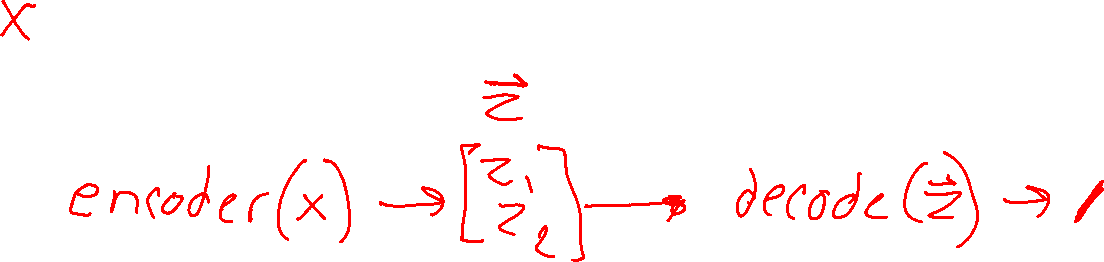 x
z⃗
encoder(x) → [z₁ z₂] → decode(z⃗) →